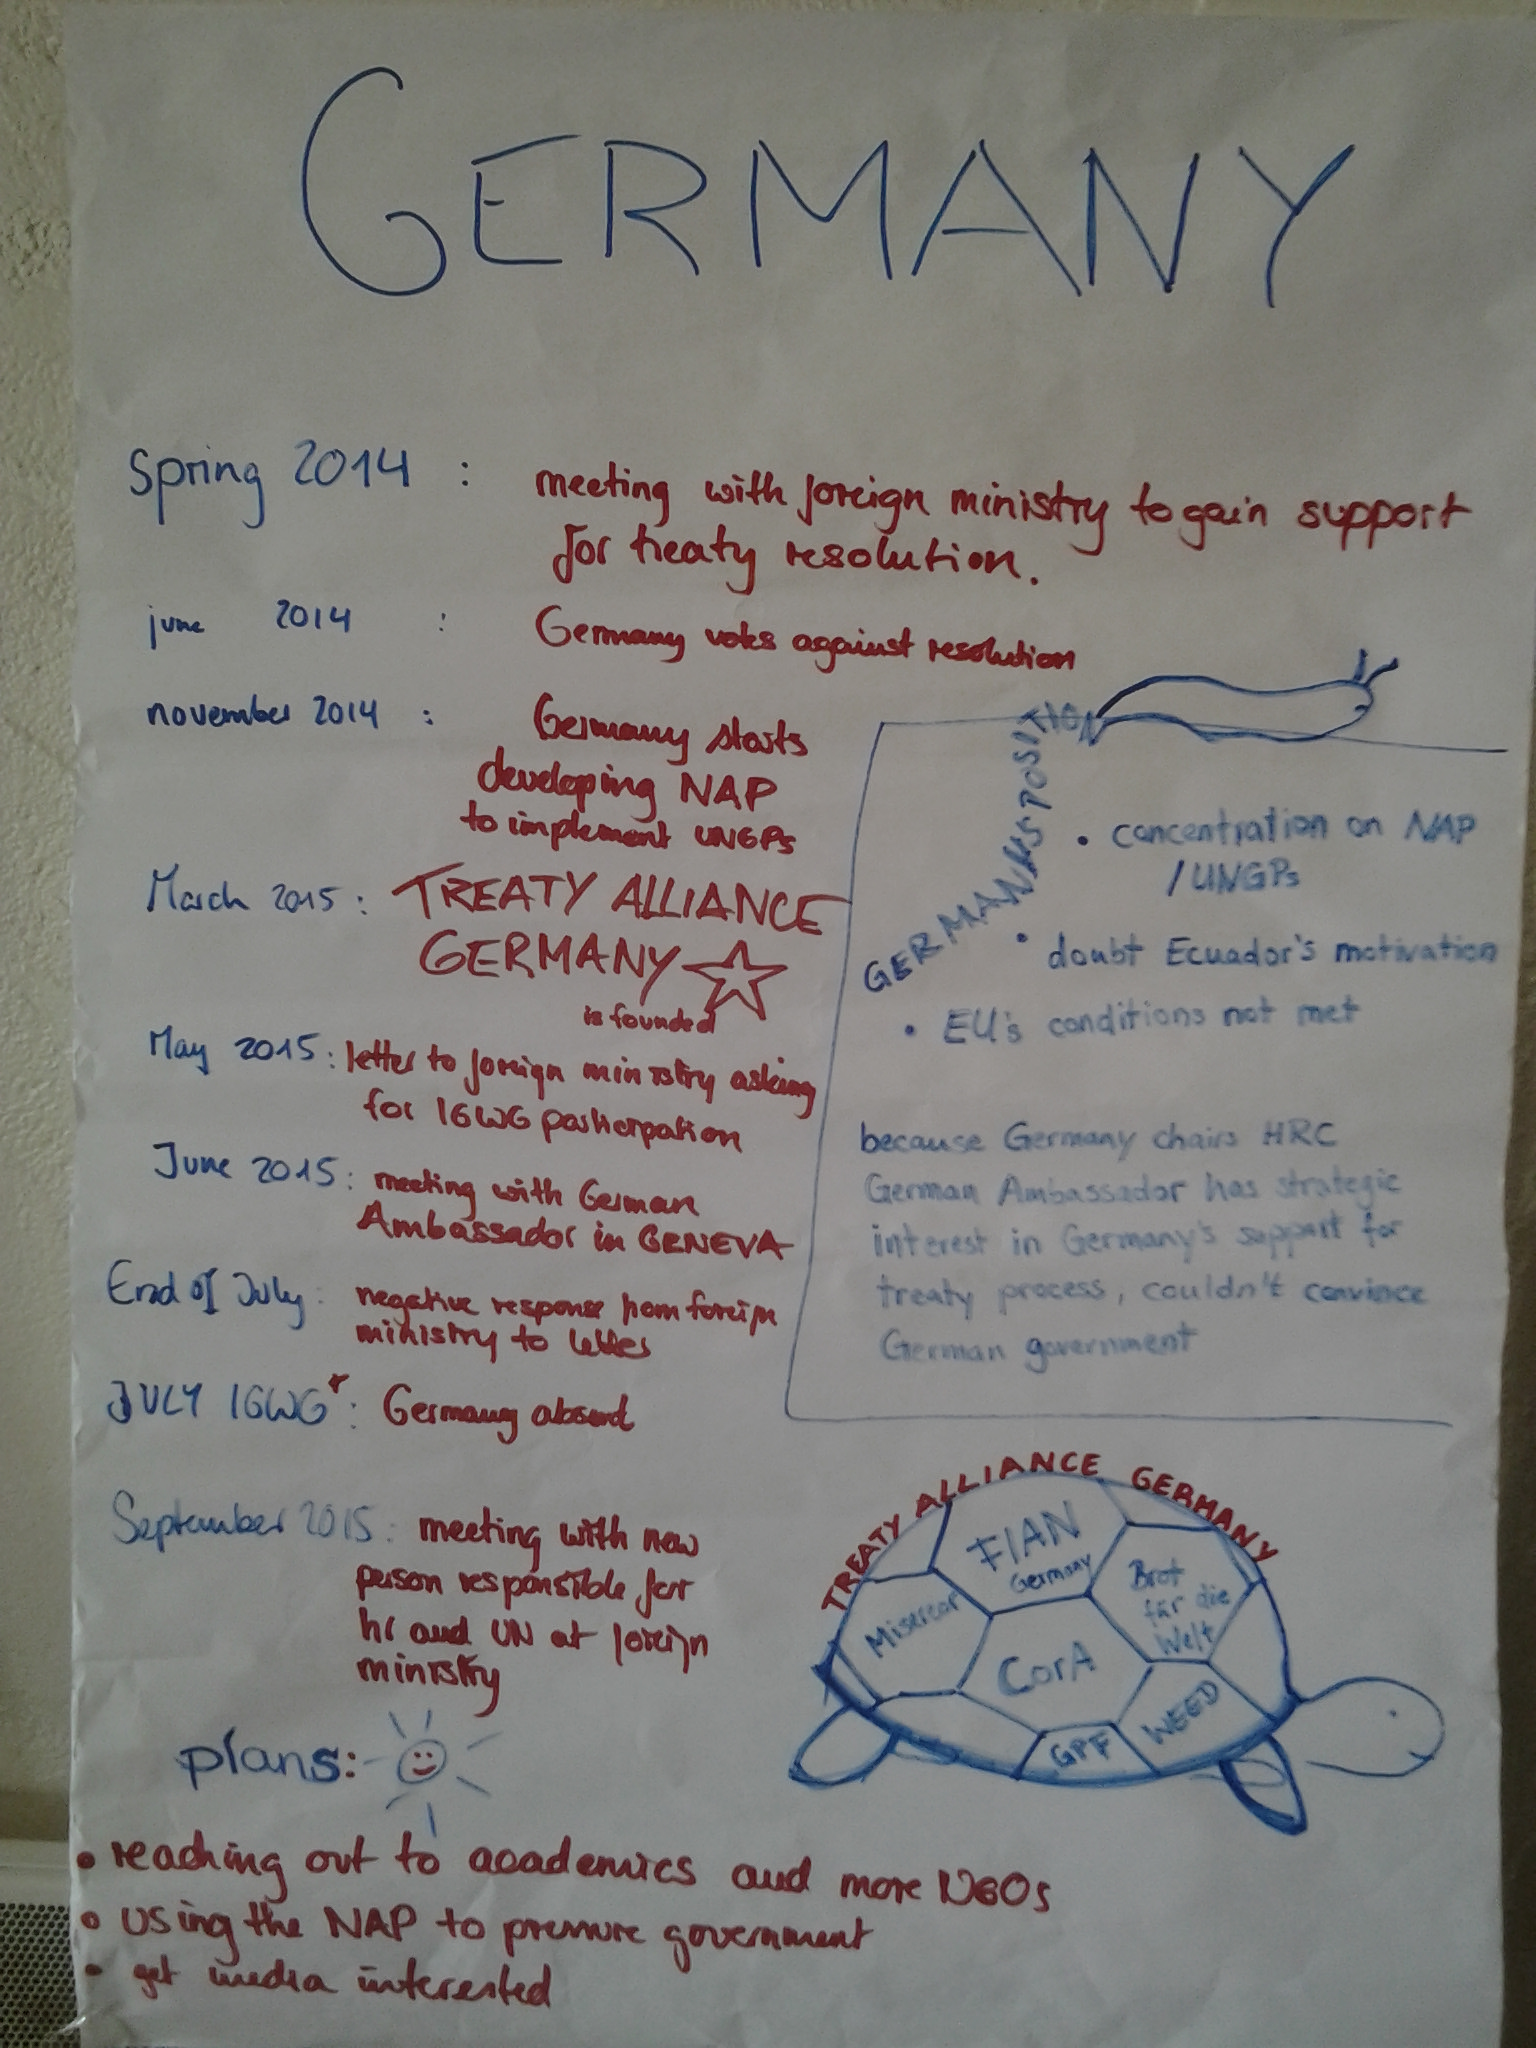 GERMANY
Spring 2014 : meeting with foreign ministry to gain support
for treaty resolution.
june 2014 : Germany votes against resolution
november 2014 : Germany starts
developing NAP
to implement UNGPs
March 2015 : TREATY ALLIANCE
GERMANY
is founded
May 2015 : letter to foreign ministry asking
for IGWG participation
June 2015 : meeting with German
Ambassador in GENEVA
End of July : negative response from foreign
ministry to letter
JULY IGWG* : Germany absent
September 2015 : meeting with new
person responsible for
hr and UN at foreign
ministry
GERMANY'S POSITION
• concentration on NAP
/UNGPs
• doubt Ecuador's motivation
• EU's conditions not met
because Germany chairs HRC
German Ambassador has strategic
interest in Germany's support for
treaty process, couldn't convince
German government
TREATY ALLIANCE GERMANY
FIAN
Germany
Misereor
Brot
für die
Welt
CorA
GPF
WEED
plans:
• reaching out to academics and more NGOs
• using the NAP to pressure government
• get media interested